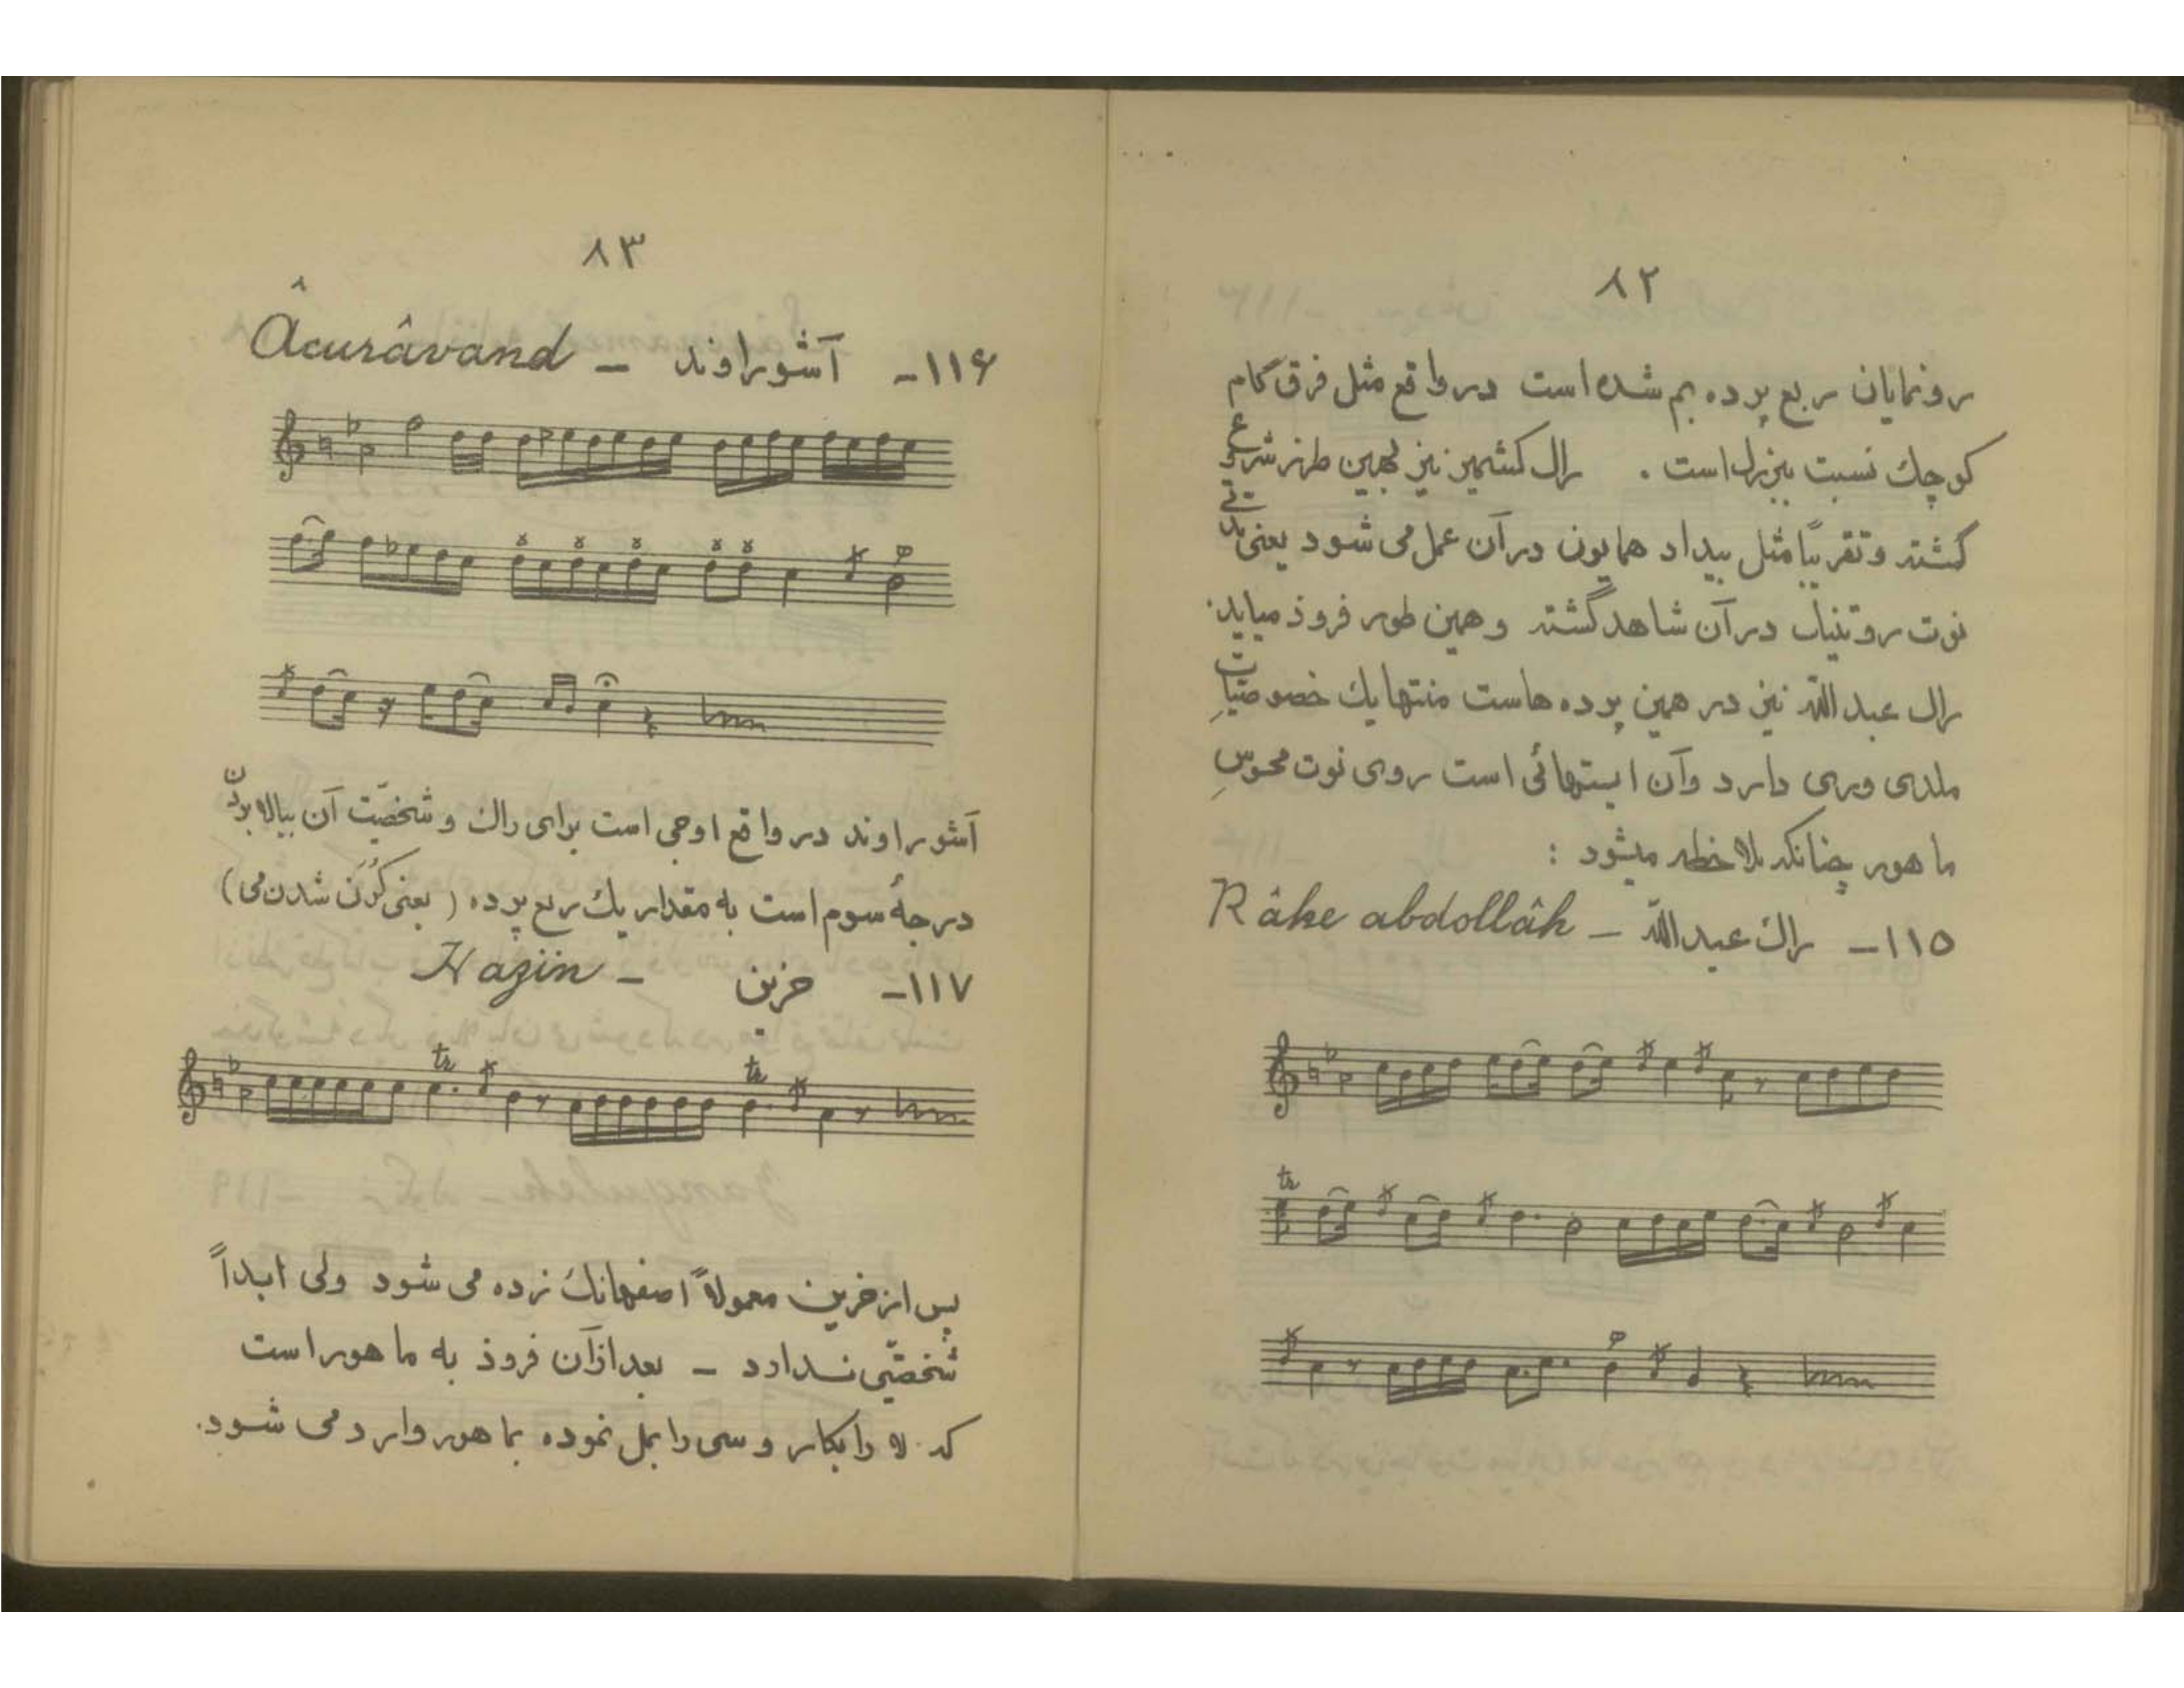 ۸۲
رونمایان ربع پرده بم شده است در واقع مثل فرق گام
کوچک نسبت ببزرگ است . راک کشمیر نیز بهمین طرز شروع
گشته و تقریباً مثل بیداد همایون در آن عمل می شود یعنی
نوت در آن شاهد گشته و همین طور فرود میاید.
راک عبدالله نیز در همین پرده هاست منتها یک خصوصیات
ملدی وری دارد و آن ایستهائی است روی نوت محسوس
ماهور چنانکه ملاحظه میشود :
۱۱۵- راک عبدالله - Râke abdollâh
tr
۸۳
۱۱۶- آشوراوند - Âcurâvand
آشوراوند در واقع اوجی است برای راک و شخصیّت آن ببالا بردن
درجهٔ سوم است به مقدار یک ربع پرده ( یعنی کُرُن شدن می )
۱۱۷- حزین - Hazin
tr tr
پس از حزین معمولاً اصفهانک زده می شود ولی ابداً
شخصیّتی ندارد - بعد از آن فرود به ماهور است
که لا را بکار و سی را بمل نموده بماهور وارد می شود.